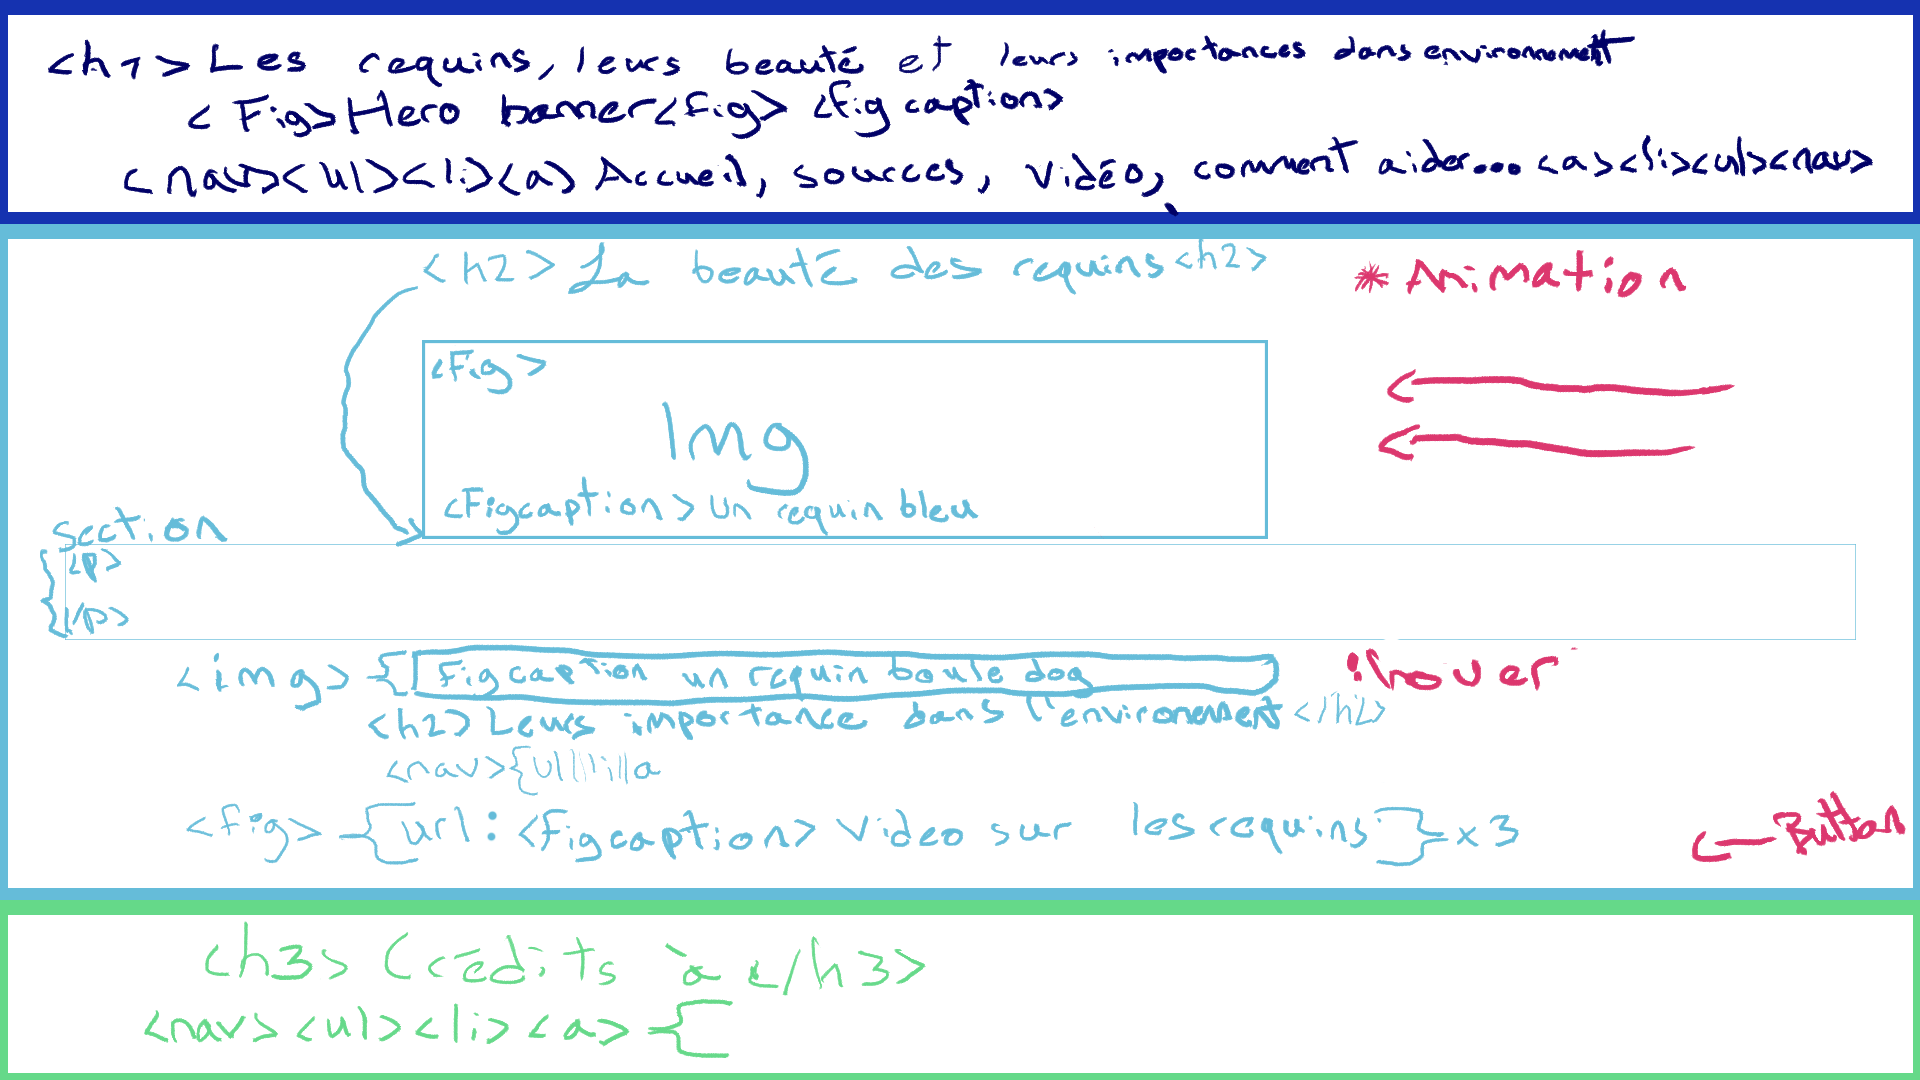 <h1> Les requins, leurs beauté et leurs importances dans environnement
<Fig> Hero banner <fig> <figcaption>
<nav><ul><li><a> Accueil, sources, vidéo, comment aider... <a><li><ul><nav>
<h2> La beauté des requins <h2>
* Animation
<Fig>
Img
<Figcaption> un requin bleu
section
<p>
</p>
<img> { Figcaption un requin boule dog
:hover
<h2> Leurs importance dans l'environement </h2>
<nav> { ul li a
<fig> { url : <figcaption> Video sur les requins } x 3
Button
<h3> Crédits à </h3>
<nav> <ul> <li> <a> {